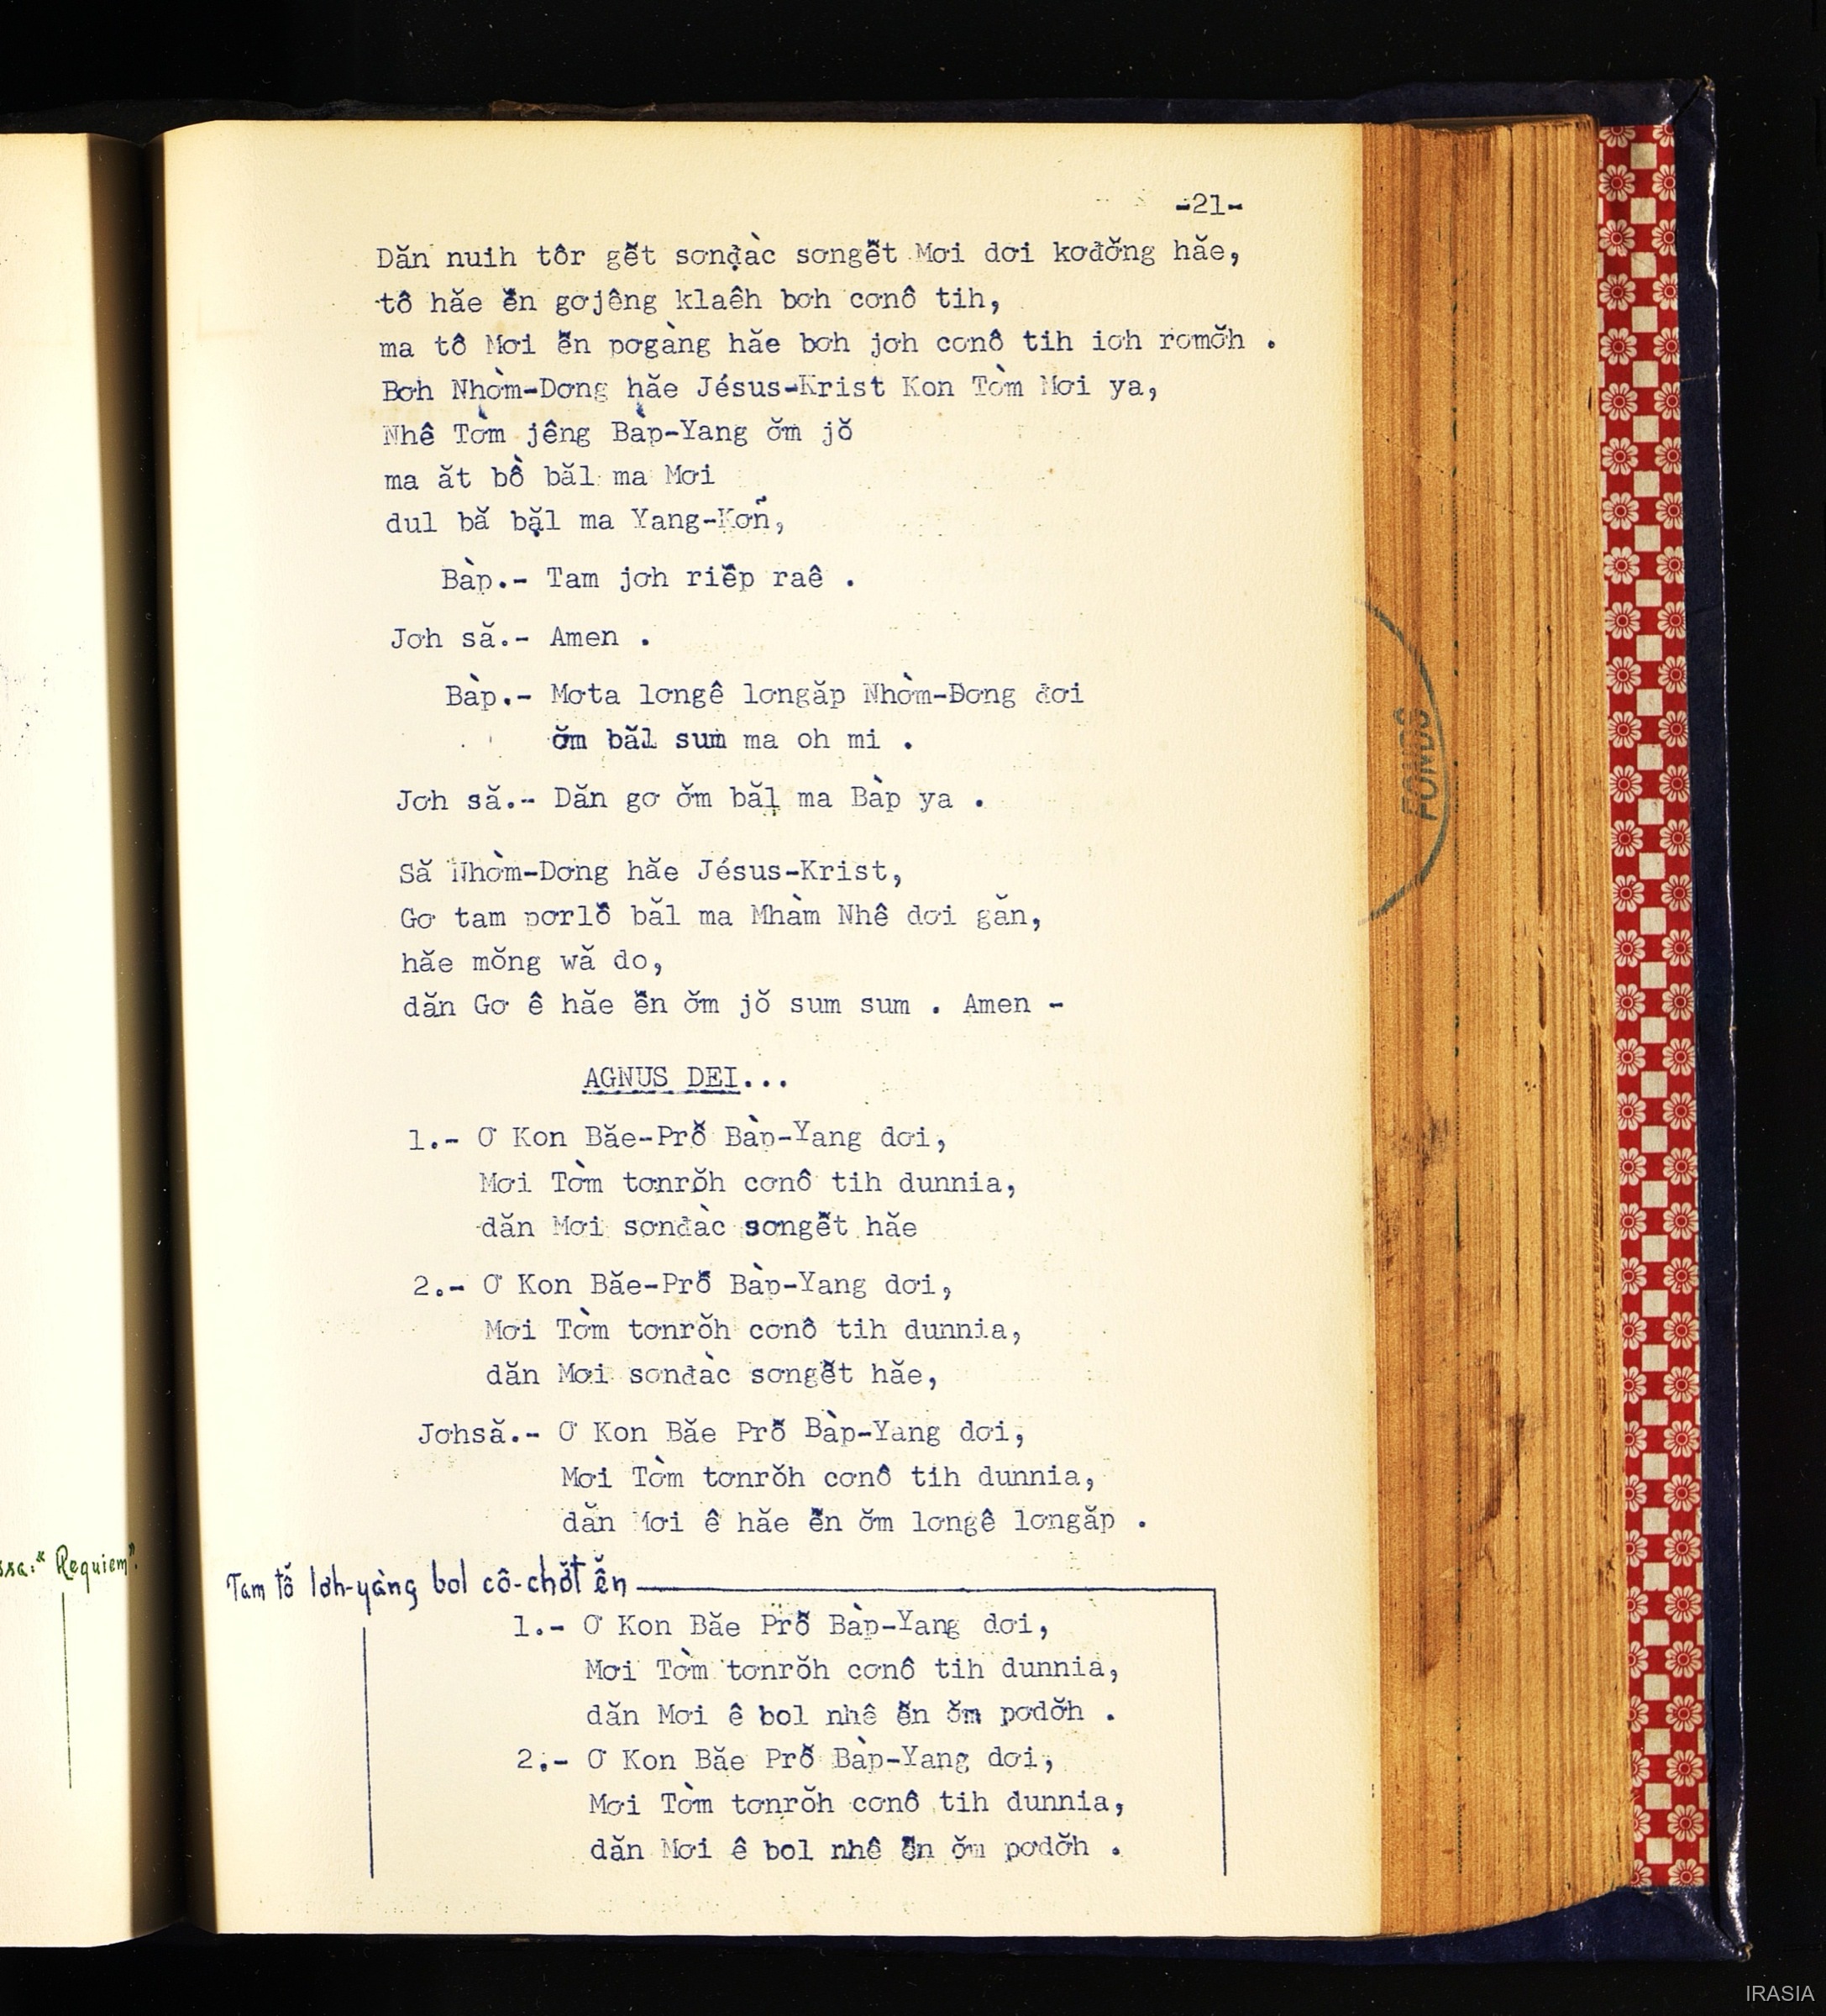 -21-
Dăn nuih tôr gê̆t sơnđàc sơngê̆t Mơi dơi kơđơ̆ng hăe,
tô hăe ê̆n gơjêng klaêh bơh cơnô tih,
ma tô Mơi ê̆n pơgàng hăe bơh jơh cơnô tih iơh rơmơ̆h .
Bơh Nhờm-Dơng hăe Jésus-Krist Kon Tờm Mơi ya,
Nhê Tờm jêng Bàp-Yang ơ̆m jŏ
ma ăt bồ băl ma Mơi
dul bă băl ma Yang-Kơñ,
Bàp.- Tam jơh riê̆p raê .
Jơh să.- Amen .
Bàp.- Mơta lơngê lơngăp Nhờm-Đơng đơi
ơ̆m băl sum ma oh mi .
Jơh să.- Dăn gơ ơ̆m băl ma Bàp ya .
Să Nhờm-Dơng hăe Jésus-Krist,
Gơ tam pơrlô̆ băl ma Mhàm Nhê dơi găn,
hăe mŏng wă do,
dăn Gơ ê hăe ê̆n ơ̆m jŏ sum sum . Amen -
AGNUS DEI...
1.- Ơ Kon Băe-Prô̆ Bàp-Yang dơi,
Mơi Tờm tơnrŏh cơnô tih dunnia,
dăn Mơi sơnđàc sơngê̆t hăe
2.- Ơ Kon Băe-Prô̆ Bàp-Yang dơi,
Mơi Tờm tơnrŏh cơnô tih dunnia,
dăn Mơi sơnđàc sơngê̆t hăe,
Jơhsă.- Ơ Kon Băe Prô̆ Bàp-Yang dơi,
Mơi Tờm tơnrŏh cơnô tih dunnia,
dăn Mơi ê hăe ê̆n ơ̆m lơngê lơngăp .
"Requiem".
Tam tô̆ lơh-yàng bol cô-chơ̆t ê̆n
1.- Ơ Kon Băe Prô̆ Bàp-Yang dơi,
Mơi Tờm tơnrŏh cơnô tih dunnia,
dăn Mơi ê bol nhê ê̆n ơ̆m pơdơ̆h .
2.- Ơ Kon Băe Prô̆ Bàp-Yang dơi,
Mơi Tờm tơnrŏh cơnô tih dunnia,
dăn Mơi ê bol nhê ê̆n ơ̆m pơdơ̆h .
FONDS
IRASIA